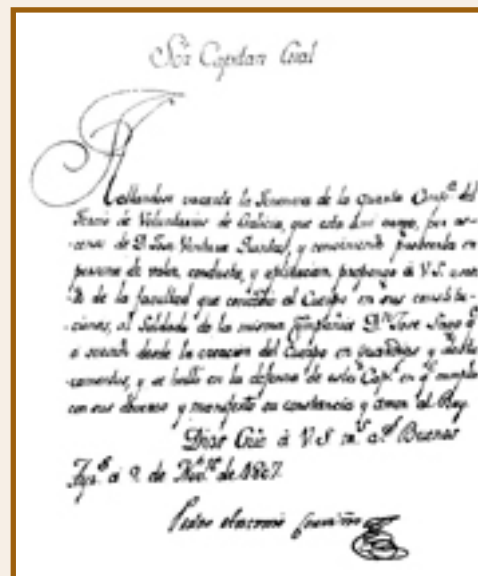 Sõr Capitan Gral
Hallandose vacante la Tenencia de la quarta Comp.ª del
Tercio de Voluntarios de Galicia, que esta á mi cargo, por as-
censo de D. Ventura y conviniendo proveerla en
persona de valor, conducta, y aplicacion, propongo á V.S. usan-
do de la facultad que concedió al Cuerpo en sus constitu-
ciones, al Soldado de la misma Compañia D.n Jose q.e
á servido desde la creacion del Cuerpo en guardias y desta-
camentos, y se halló en la defensa de esta Cap.l en q.e cumplió
con sus deveres y manifestó su constancia y amor al Rey.
Dios Gũe á V.S. m.s a.s Buenos
Ay.s á 9 de Nov.re de 1807.
Pedro Antonio Cerviño